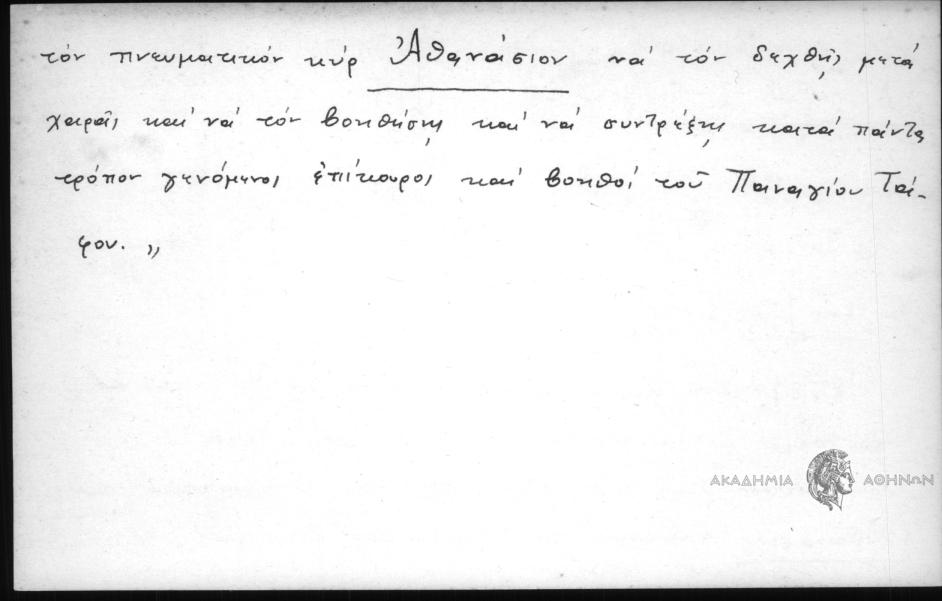 τόν πνευματικόν κύρ Ἀθανάσιον νά τόν δεχθῇς μετά
χαρᾶς καί νά τόν βοηθήσῃς καί νά συντρέξῃς κατά πάντα
τρόπον γενόμενοι ἐπίκουροι καί βοηθοί τοῦ Παναγίου Τά-
φου. „
ΑΚΑΔΗΜΙΑ ΑΘΗΝΩΝ